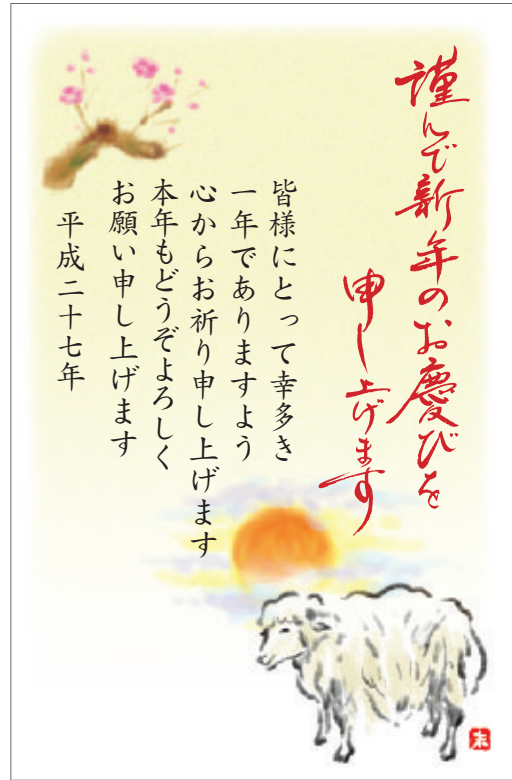 謹んで新年のお慶びを
申し上げます
皆様にとって幸多き
一年でありますよう
心からお祈り申し上げます
本年もどうぞよろしく
お願い申し上げます
平成二十七年
未